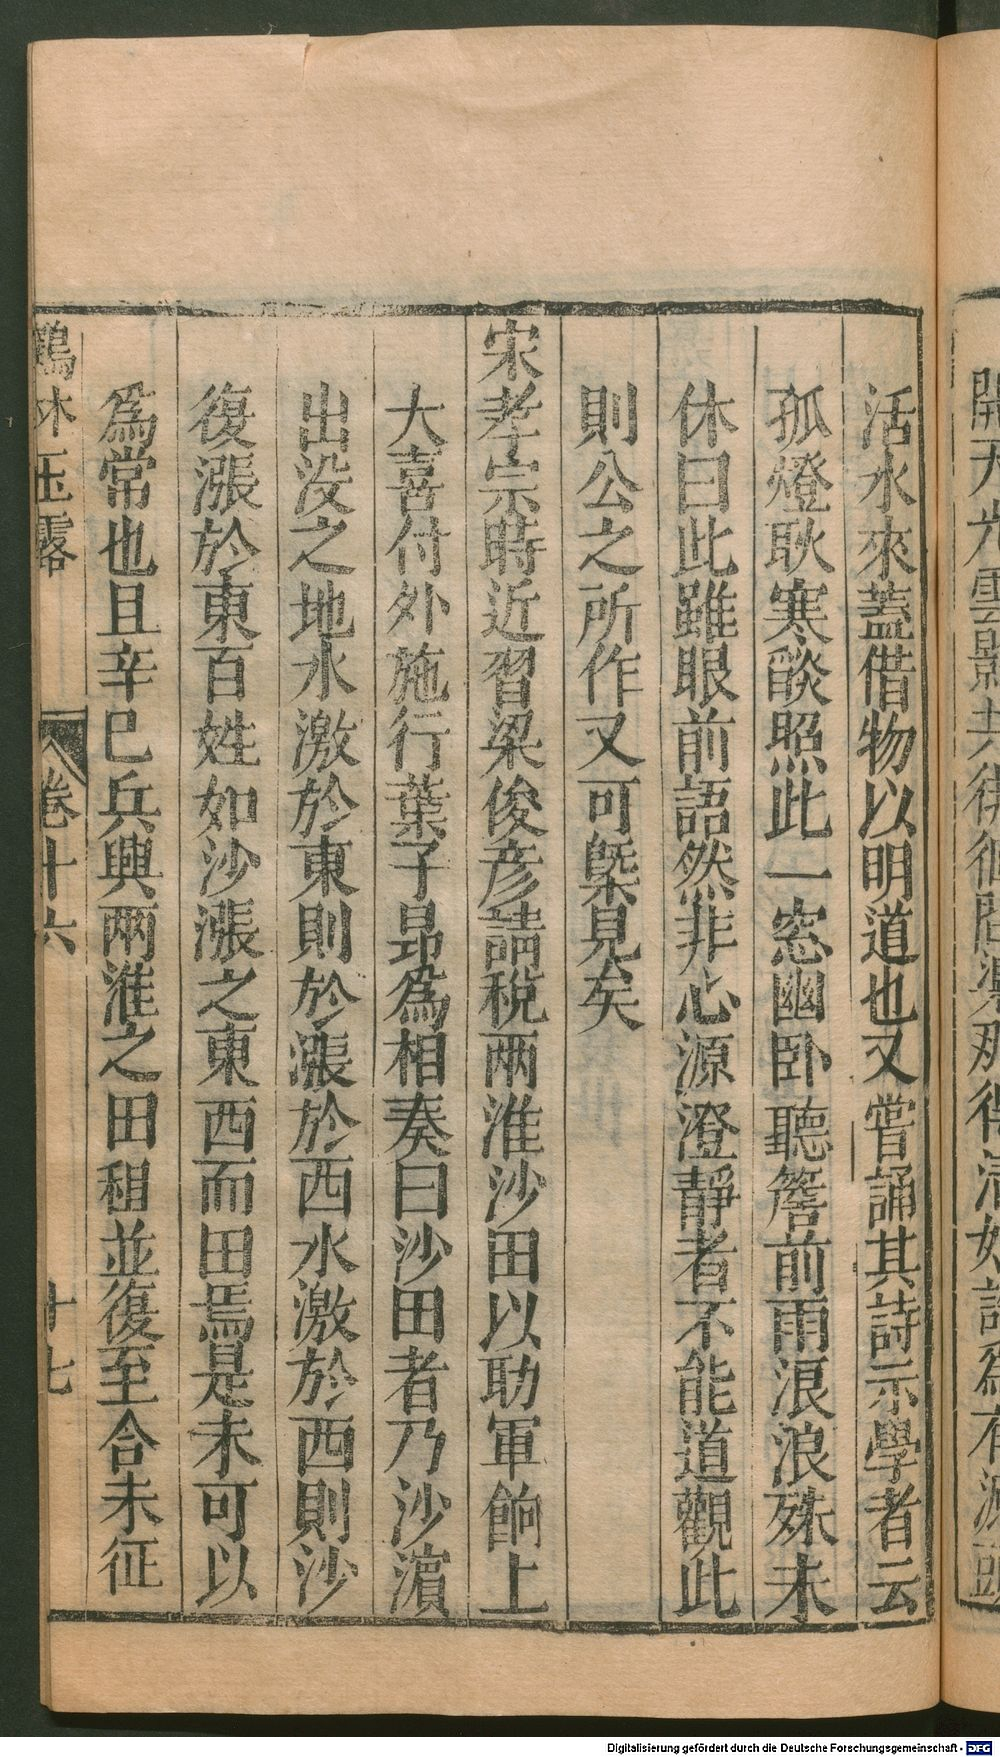 開天光雲影共徘徊問渠那得清如許為有源頭
活水來蓋借物以明道也又嘗誦其詩示學者云
孤燈耿寒燄照此一窓幽卧聽簷前雨浪浪殊未
休曰此雖眼前語然非心源澄靜者不能道觀此
則公之所作又可槩見矣
宋孝宗時近習梁俊彦請稅兩淮沙田以助軍餉上
大喜付外施行葉子昻為相奏曰沙田者乃沙濵
出没之地水激於東則於漲於西水激於西則沙
復漲於東百姓如沙漲之東西而田焉是未可以
為常也且辛巳兵興兩淮之田租並復至合未征
鶴林玉露 卷十六 十七
Digitalisierung gefördert durch die Deutsche Forschungsgemeinschaft - DFG